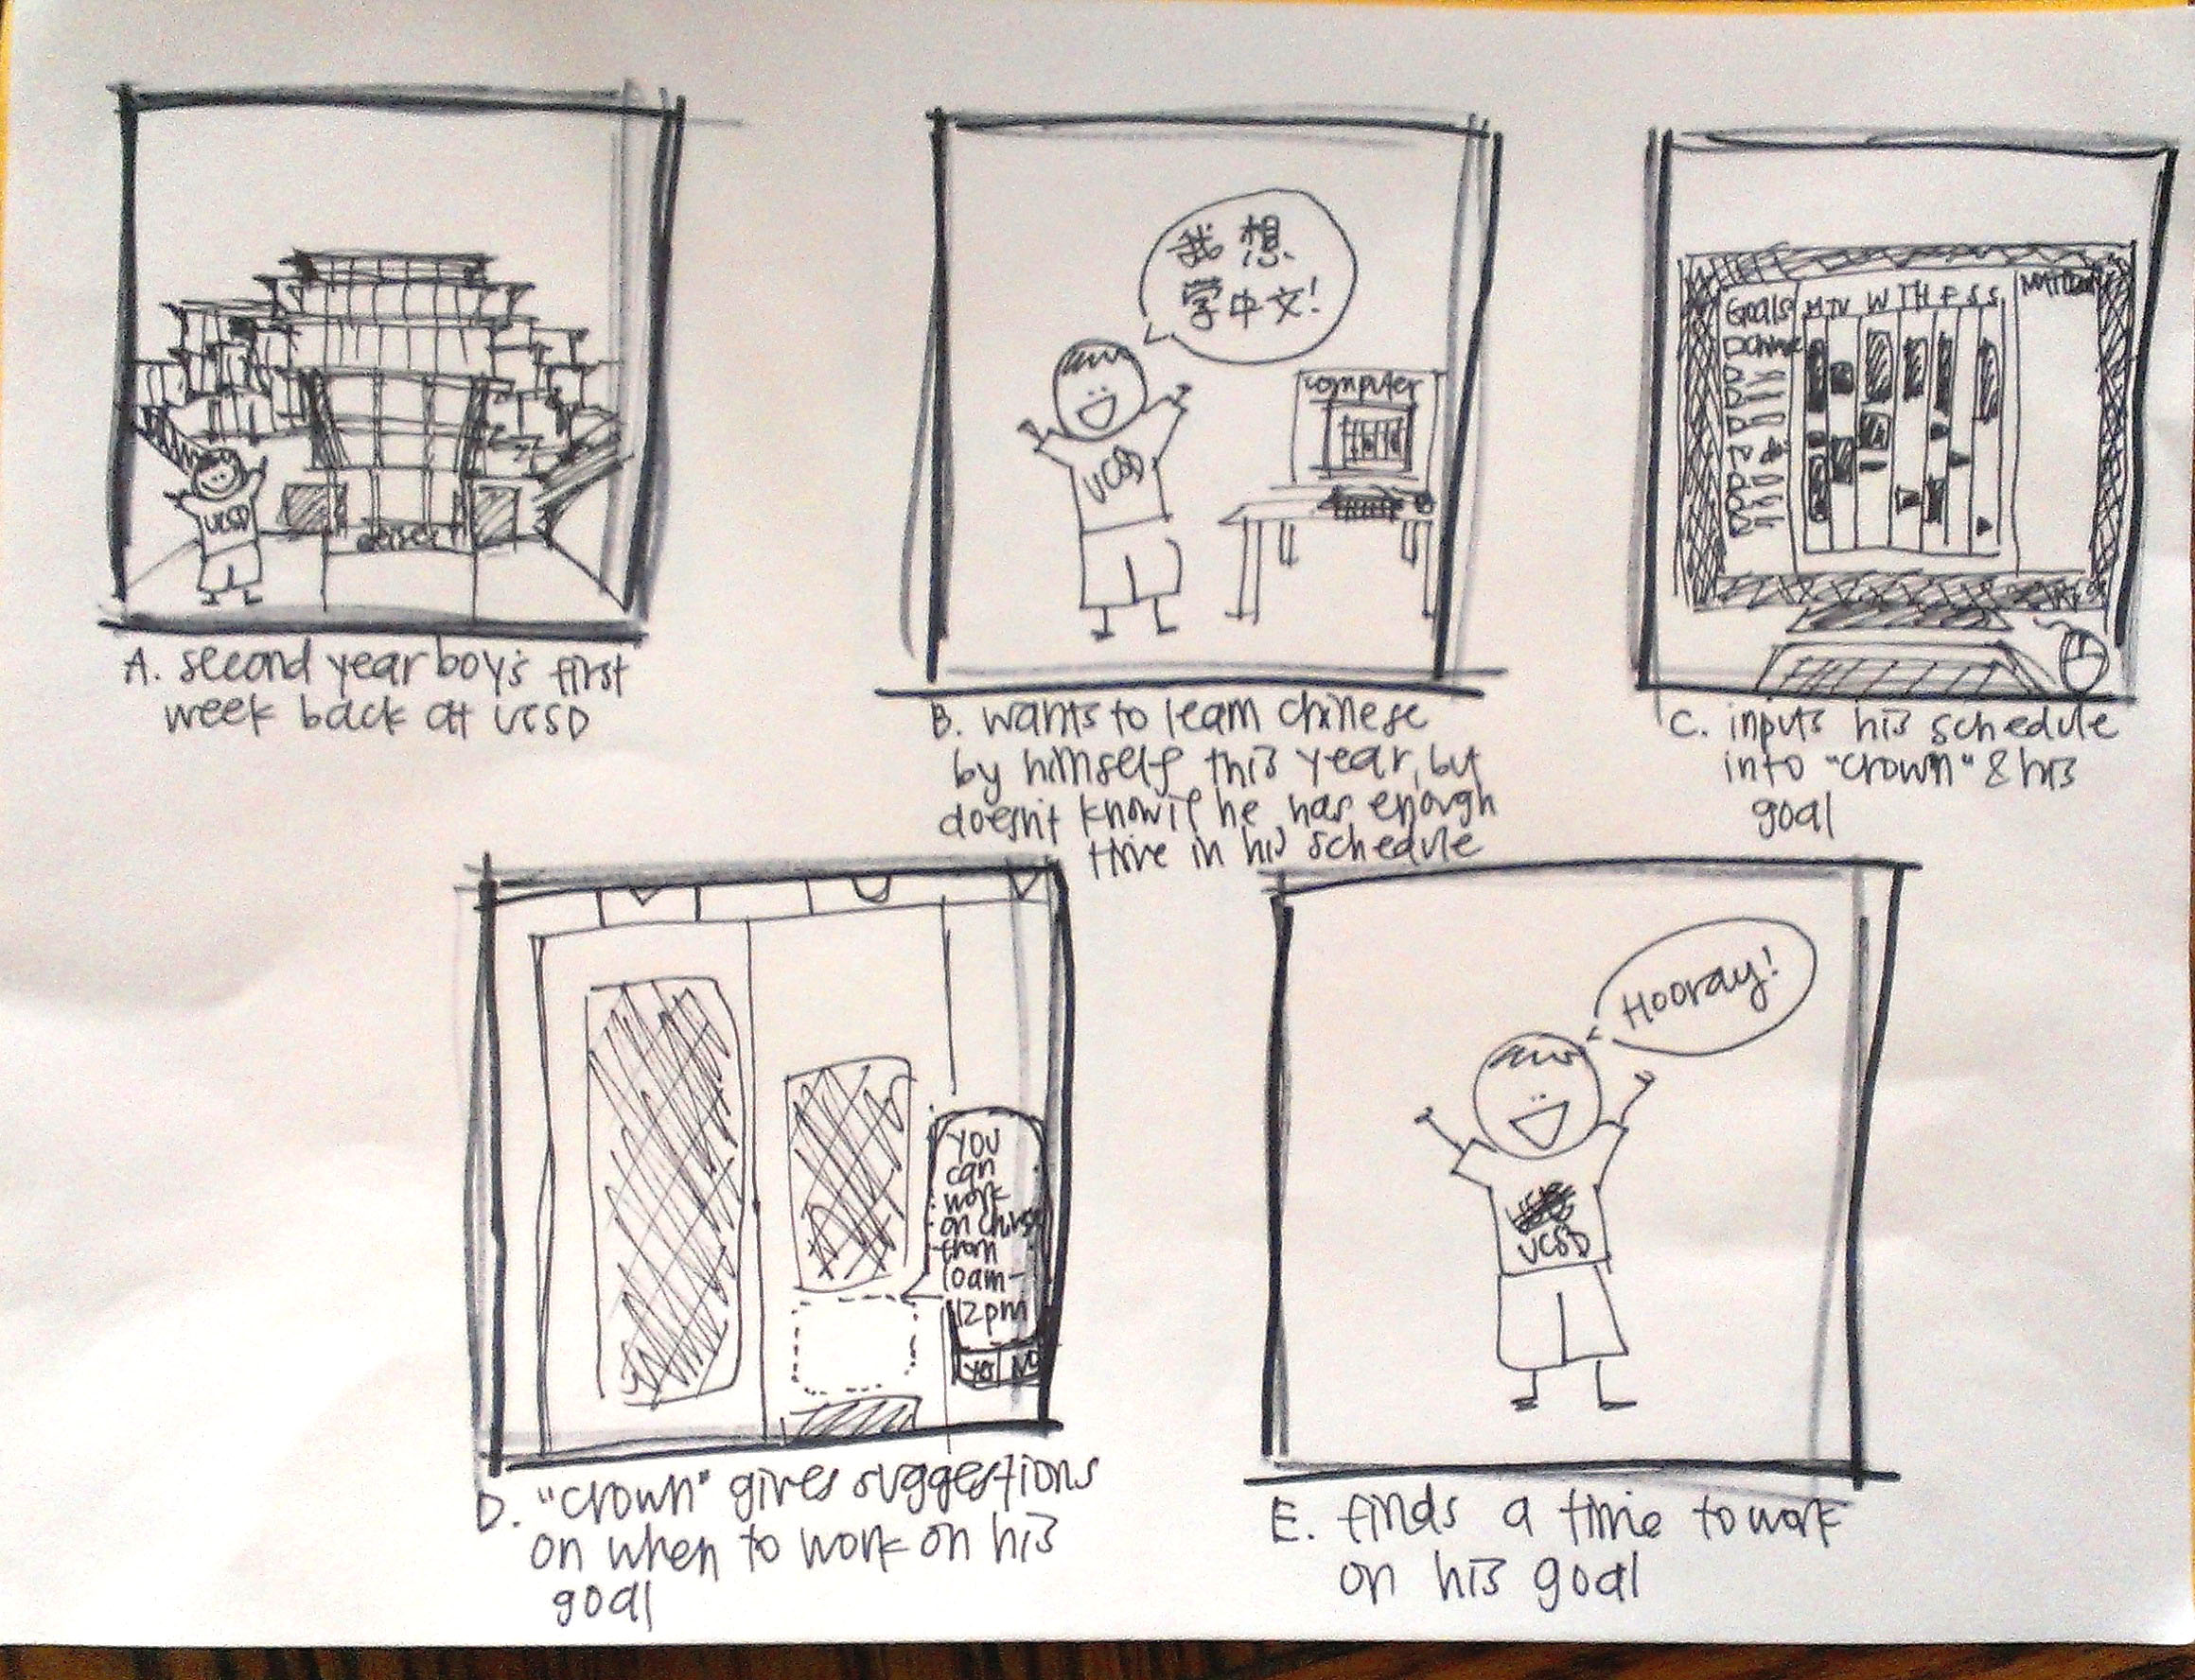 UCSD
geisel
A. second year boy's first
week back at UCSD
我想
学中文!
computer
UCSD
B. wants to learn chinese
by himself this year, but
doesn't know if he has enough
time in his schedule
Goals
M TU W TH F S S
C. inputs his schedule
into "crown" & his
goal
M
T
YOU
can
work
on
from
10am-
12pm
Yes NO
D. "crown" gives suggestions
on when to work on his
goal
Hooray!
UCSD
E. finds a time to work
on his goal